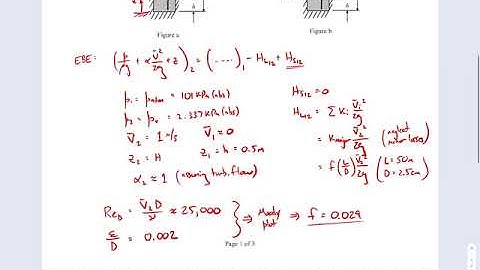 h
h
Figure a
Figure b
EBE: (p/ρg + α V̄²/2g + z)₂ = (.....)₁ - H_L12 + H_S12
p₁ = p_atm = 101 kPa (abs)
p₂ = p_v = 2.337 kPa (abs)
V̄₂ = 1 m/s V̄₁ ≈ 0
z₂ = H z₁ = h = 0.5 m
α₂ ≈ 1 (assuming turb. flow)
H_S12 = 0
H_L12 = Σ Kᵢ V̄ᵢ²/2g
= K_major V̄₂²/2g (neglect minor losses)
= f (L/D) V̄₂²/2g (L = 50 m D = 2.5 cm)
Re_D = V̄₂D/ν ≈ 25,000
ε/D = 0.002
} ⇒ Moody plot ⇒ f = 0.029
Page 1 of 3